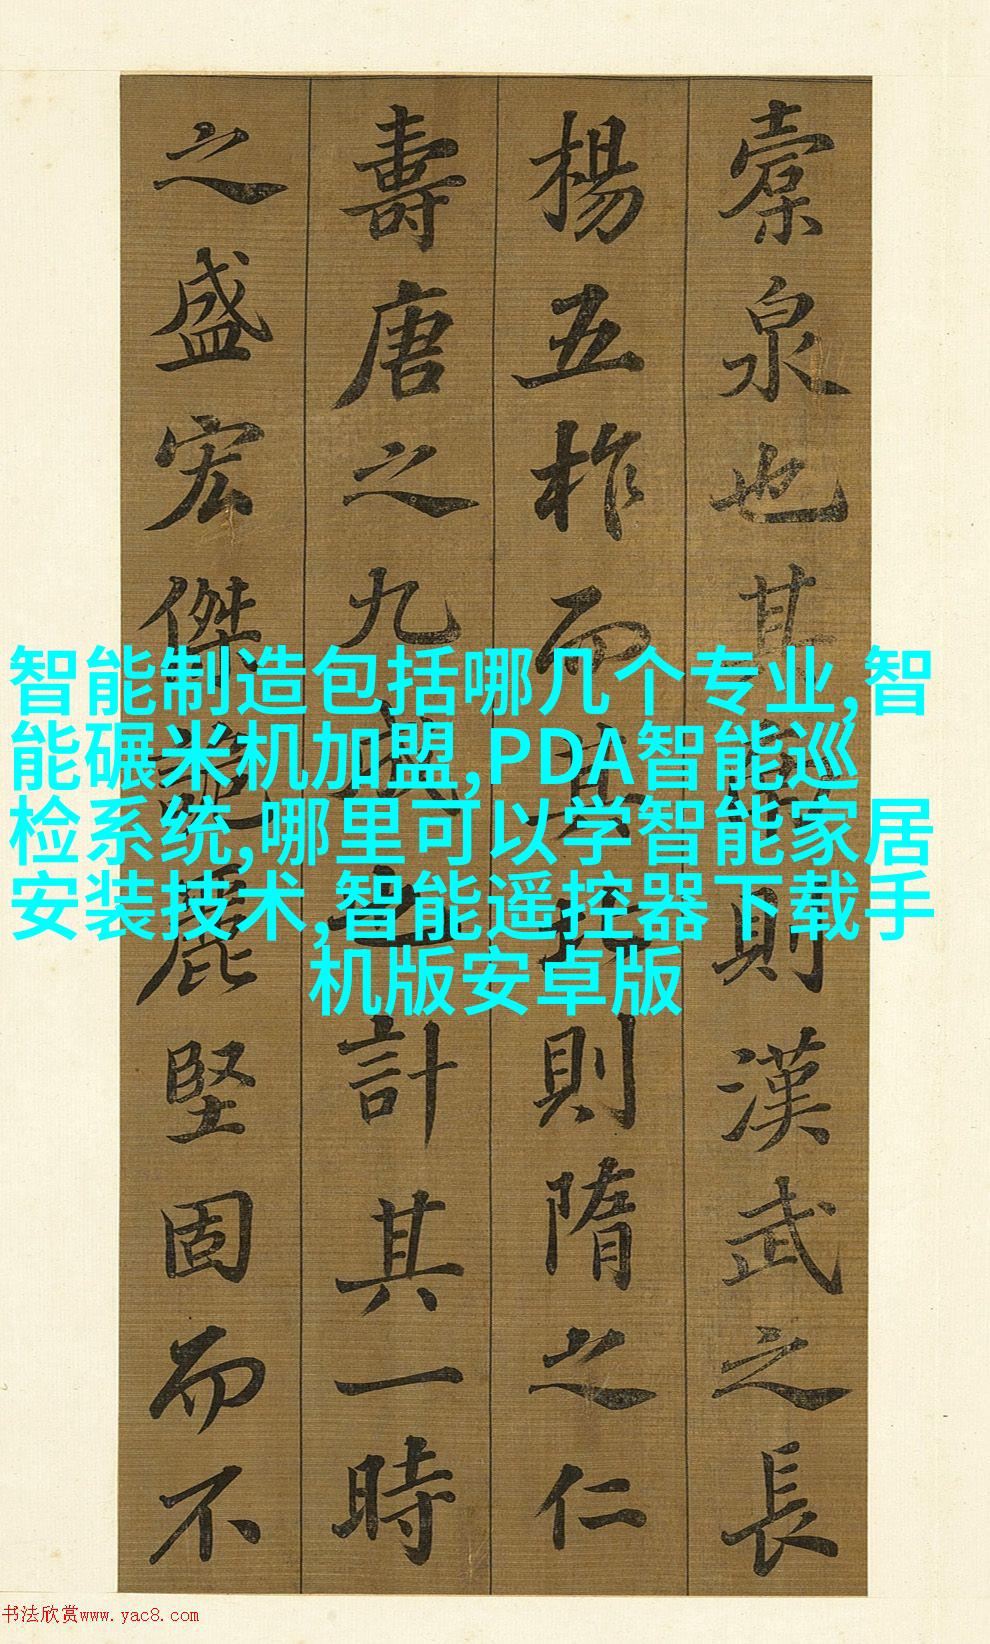 槖泉也其南則漢武之長
楊五柞而其北則隋之仁
壽唐之九成也計其一時
之盛宏傑詭麗堅固而不
智能制造包括哪几个专业,智
能碾米机加盟,PDA智能巡
检系统,哪里可以学智能家居
安装技术,智能遥控器下载手
机版安卓版
书法欣赏www.yac8.com